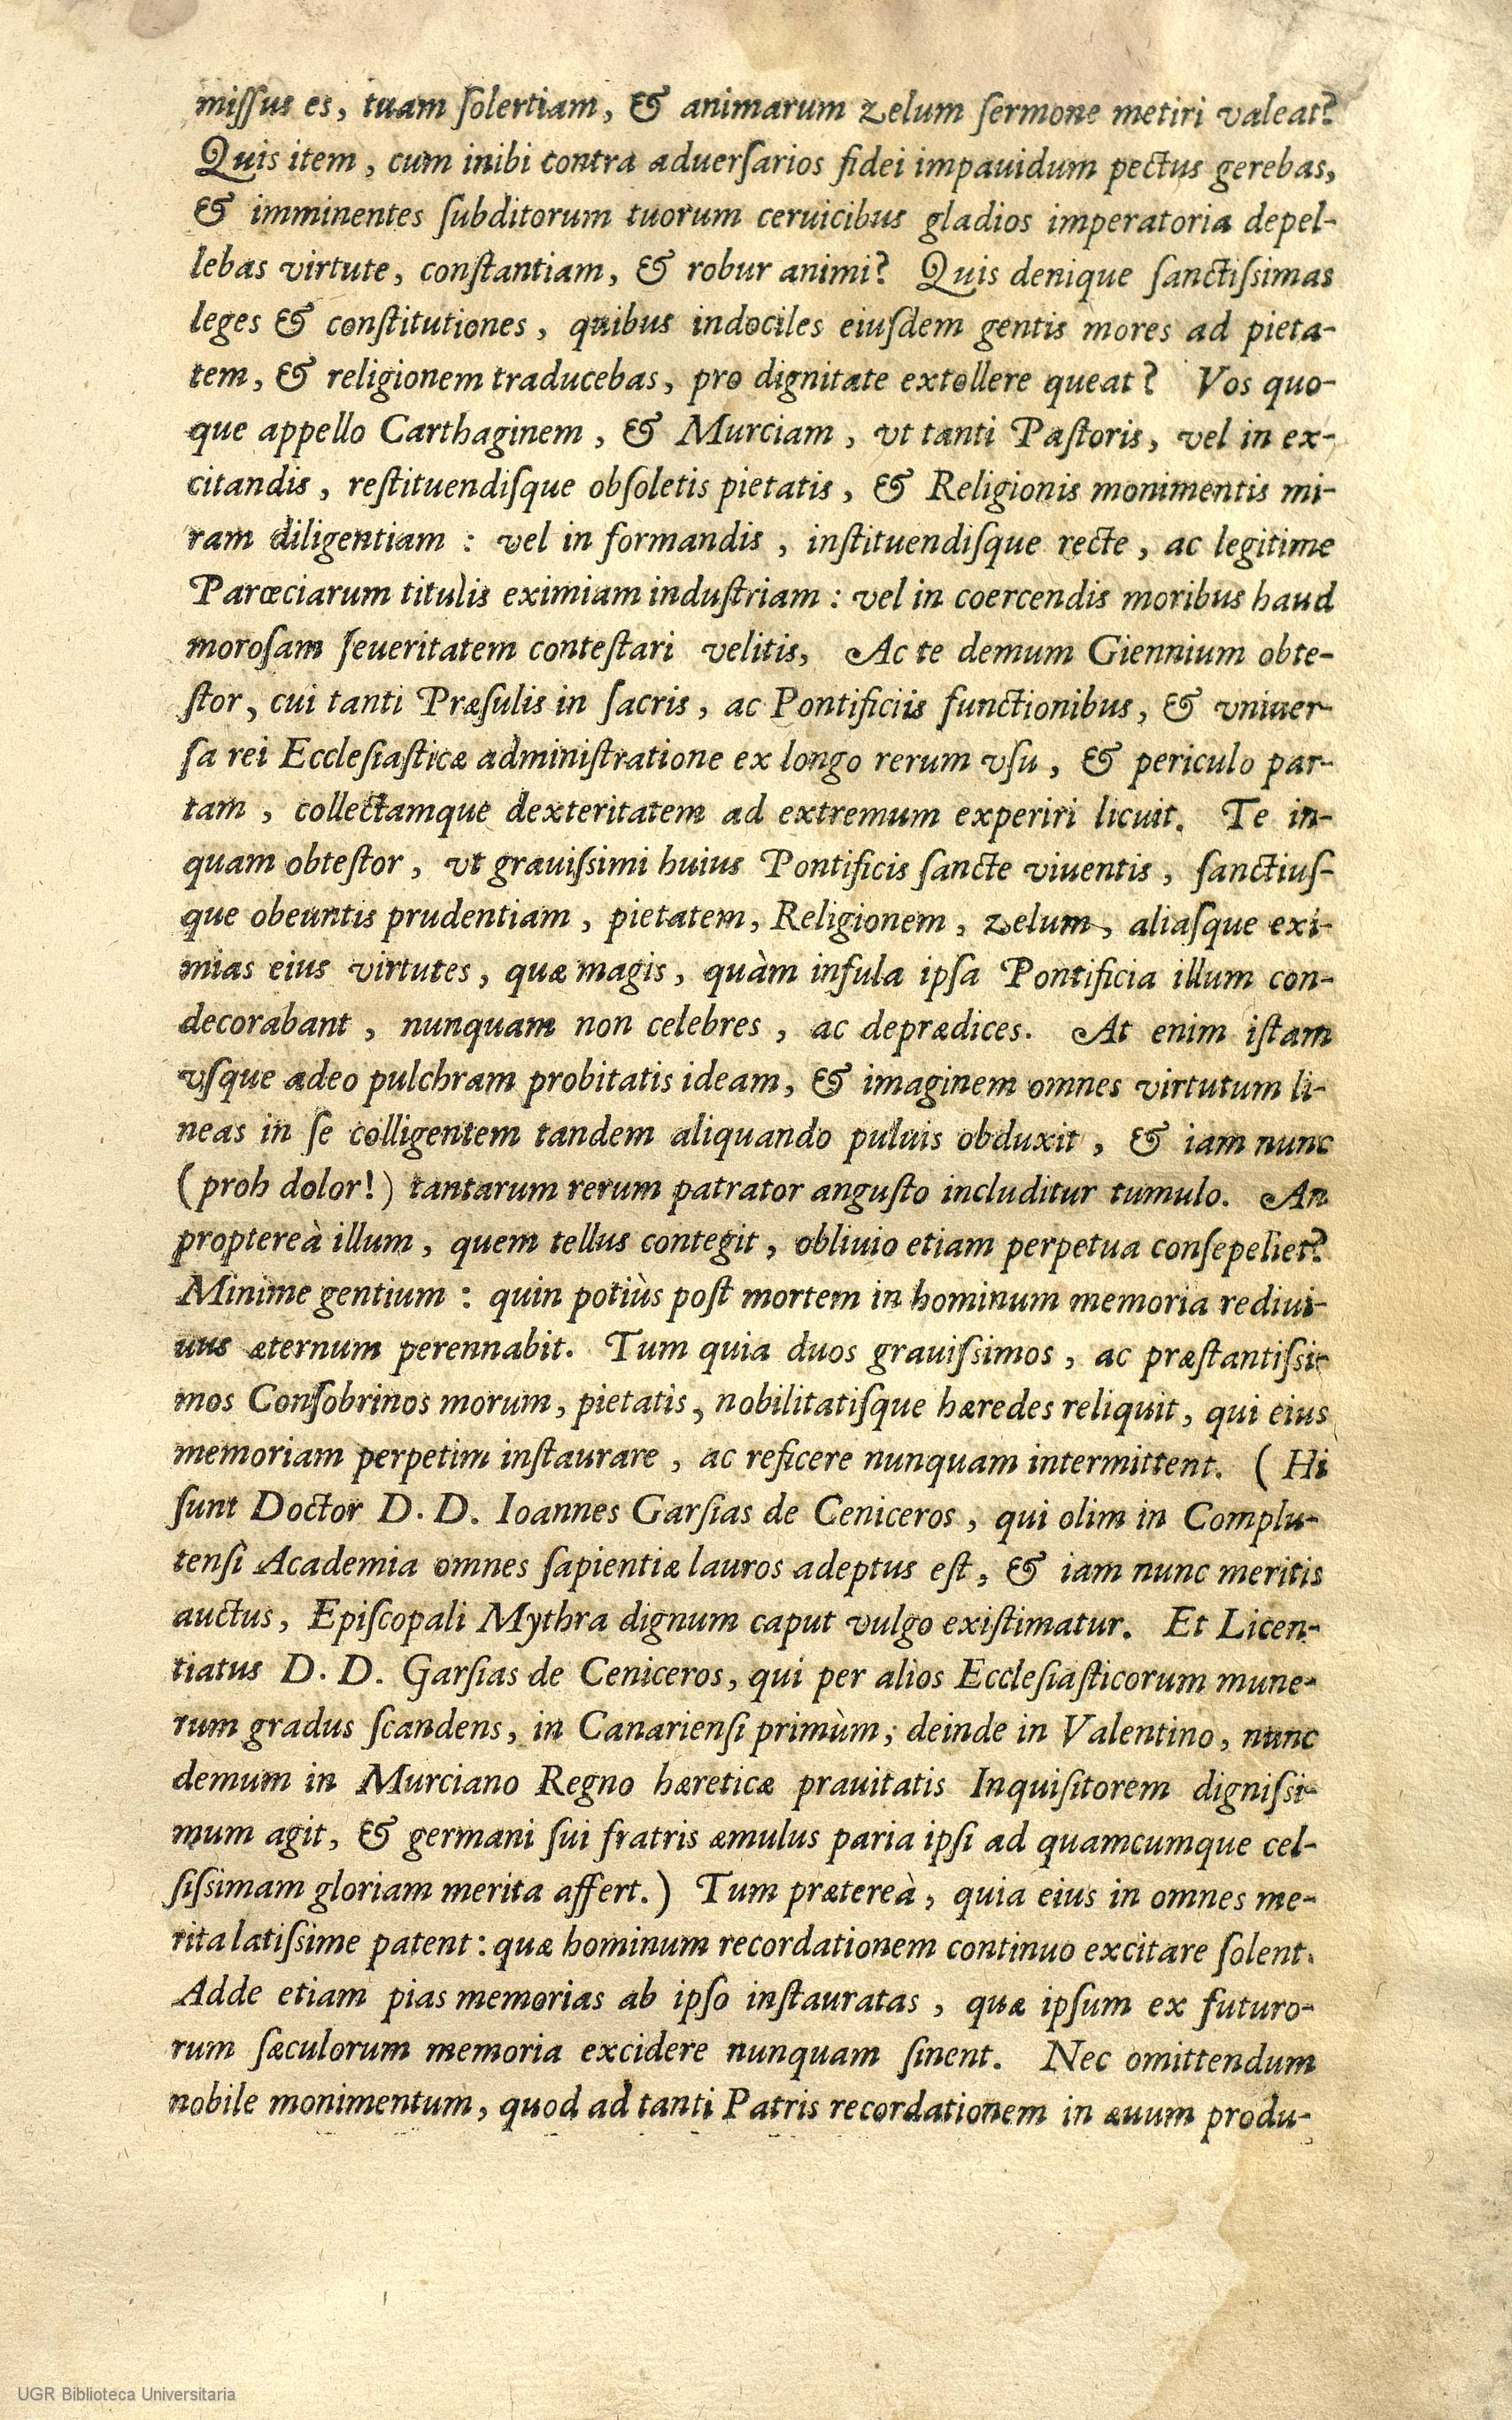 miſſus es, tuam ſolertiam, & animarum zelum ſermone metiri valeat?
Quis item, cum inibi contra aduerſarios fidei impauidum pectus gerebas,
& imminentes ſubditorum tuorum ceruicibus gladios imperatoria depel-
lebas virtute, conſtantiam, & robur animi? Quis denique ſanctiſsimas
leges & conſtitutiones, quibus indociles eiuſdem gentis mores ad pieta-
tem, & religionem traducebas, pro dignitate extollere queat? Vos quo-
que appello Carthaginem, & Murciam, vt tanti Paſtoris, vel in ex-
citandis, reſtituendiſque obſoletis pietatis, & Religionis monimentis mi-
ram diligentiam : vel in formandis, inſtituendiſque recte, ac legitime
Parœciarum titulis eximiam induſtriam : vel in coercendis moribus haud
moroſam ſeueritatem conteſtari velitis, Ac te demum Giennium obte-
ſtor, cui tanti Præſulis in ſacris, ac Pontificiis functionibus, & vniuer-
ſa rei Eccleſiaſticæ adminiſtratione ex longo rerum vſu, & periculo par-
tam, collectamque dexteritatem ad extremum experiri licuit. Te in-
quam obteſtor, vt grauiſsimi huius Pontificis ſancte viuentis, ſanctiuſ-
que obeuntis prudentiam, pietatem, Religionem, zelum, aliaſque exi-
mias eius virtutes, quæ magis, quàm infula ipſa Pontificia illum con-
decorabant, nunquam non celebres, ac deprædices. At enim iſtam
vſque adeo pulchram probitatis ideam, & imaginem omnes virtutum li-
neas in ſe colligentem tandem aliquando puluis obduxit, & iam nunc
(proh dolor!) tantarum rerum patrator anguſto includitur tumulo. An
propterеà illum, quem tellus contegit, obliuio etiam perpetua conſepeliet?
Minime gentium : quin potiùs poſt mortem in hominum memoria rediui-
uus æternum perennabit. Tum quia duos grauiſsimos, ac præſtantiſsi-
mos Conſobrinos morum, pietatis, nobilitatiſque hæredes reliquit, qui eius
memoriam perpetim inſtaurare, ac reficere nunquam intermittent. (Hi
ſunt Doctor D. D. Ioannes Garſias de Ceniceros, qui olim in Complu-
tenſi Academia omnes ſapientiæ lauros adeptus eſt, & iam nunc meritis
auctus, Epiſcopali Mythra dignum caput vulgo exiſtimatur. Et Licen-
tiatus D. D. Garſias de Ceniceros, qui per alios Eccleſiaſticorum mune-
rum gradus ſcandens, in Canarienſi primùm; deinde in Valentino, nunc
demum in Murciano Regno hæreticæ prauitatis Inquiſitorem digniſsi-
mum agit, & germani ſui fratris æmulus paria ipſi ad quamcumque cel-
ſiſsimam gloriam merita affert.) Tum prætereà, quia eius in omnes me-
rita latiſsime patent: quæ hominum recordationem continuo excitare ſolent.
Adde etiam pias memorias ab ipſo inſtauratas, quæ ipſum ex futuro-
rum ſæculorum memoria excidere nunquam ſinent. Nec omittendum
nobile monimentum, quod ad tanti Patris recordationem in æuum produ-
UGR Biblioteca Universitaria